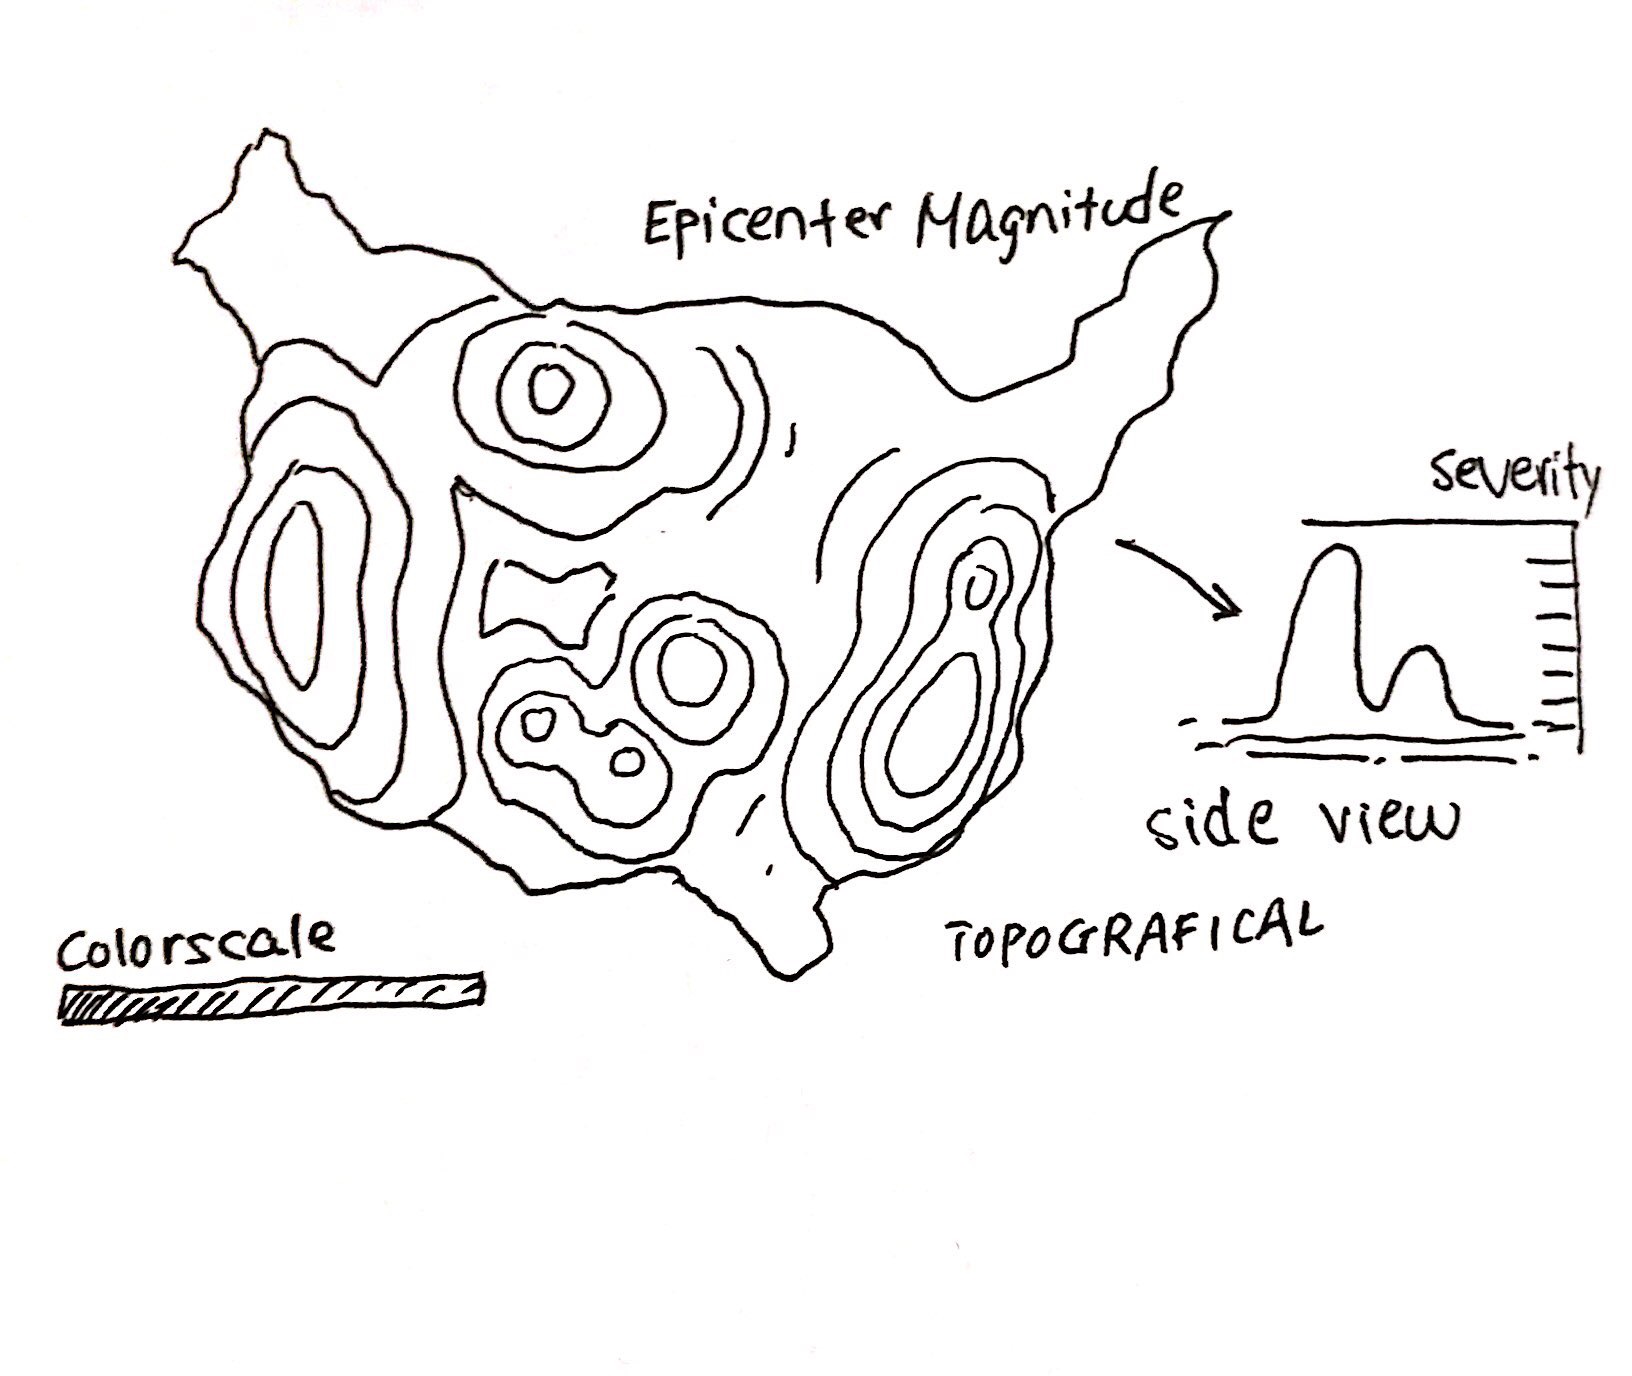 Epicenter Magnitude
severity
side view
TOPOGRAFICAL
Colorscale